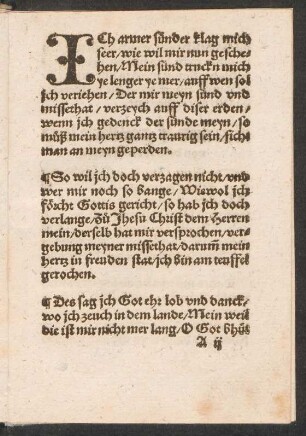 ICh armer sünder klag mich
seer/ wie wil mir nun gesche-
hen/ Mein sünd truckn mich
ye lenger ye mer/ auff wen sol
jch veriehen/ Der mir meyn sünd vnd
missethat / verzeych auff diser erden/
wenn jch gedenck der sünde meyn/ so
müß mein hertz gantz traurig sein/ sicht
man an meyn geperden.
¶ So wil jch doch verzagen nicht/ vnd
wer mir noch so bange/ Wiewol jch
förcht Gottis gericht/ so hab jch doch
verlange/ Zů Jhesu Christ dem Herren
mein/ derselb hat mir versprochen/ ver-
gebung meyner missethat/ darum̃ mein
hertz in freuden stat/ jch bin am teuffel
gerochen.
¶ Des sag jch Got ehr lob vnd danck/
wo jch zeuch in dem lande/ Mein weil
die ist mir nicht mer lang/ O Got bhüt
A ij